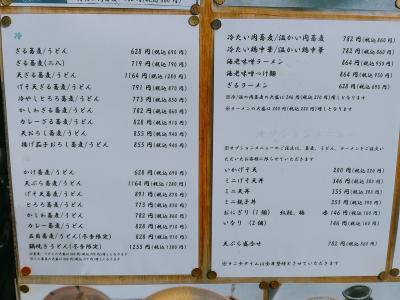 冷
ざる蕎麦/うどん 628円(税込690円)
ざる蕎麦(二八) 719円(税込790円)
天ざる蕎麦/うどん 1164円(税込1280円)
げそ天ざる蕎麦/うどん 791円(税込870円)
冷やしとろろ蕎麦/うどん 773円(税込850円)
かしわざる蕎麦/うどん 782円(税込860円)
カレーざる蕎麦/うどん 828円(税込910円)
天おろし蕎麦/うどん 855円(税込940円)
揚げ茄子おろし蕎麦/うどん 855円(税込940円)
かけ蕎麦/うどん 628円(税込690円)
天ぷら蕎麦/うどん 1164円(税込1280円)
げそ天蕎麦/うどん 791円(税込870円)
とろろ蕎麦/うどん 773円(税込850円)
かしわ蕎麦/うどん 782円(税込860円)
カレー蕎麦/うどん 828円(税込910円)
五目蕎麦/うどん(冬季限定) 828円(税込910円)
鍋焼きうどん(冬季限定) 1255円(税込1380円)
冷たい肉蕎麦/温かい肉蕎麦 782円(税込860円)
冷たい鶏中華/温かい鶏中華 782円(税込860円)
海老味噌ラーメン 864円(税込950円)
海老味噌つけ麺 864円(税込950円)
ざるラーメン 628円(税込690円)
オプションメニュー
※オプションメニューのご注文は、蕎麦、うどん、ラーメンをご注文い
ただいたお客様に限らせていただきます
いかげそ天 200円(税込220円)
ミニげそ天丼 346円(税込380円)
ミニ天丼 355円(税込390円)
ミニ親子丼 355円(税込390円)
おにぎり(1個) 紅鮭、梅 各146円(税込160円)
いなり(2個) 146円(税込160円)
天ぷら盛合せ 782円(税込860円)
※ランチタイムは全席禁煙とさせていただきます